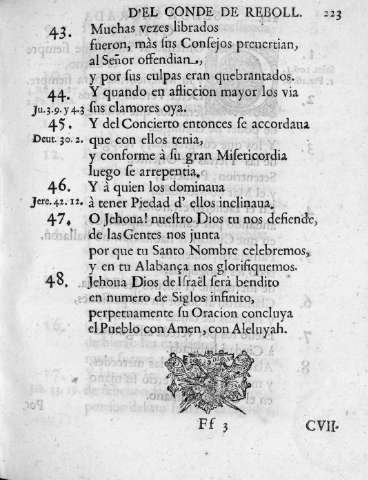 D'EL CONDE DE REBOLL. 223
43. Muchas vezes librados
fueron, màs sus Consejos preuertian,
al Señor offendian,
y por sus culpas eran quebrantados.
44. Y quando en afliccion mayor los via
Ju. 3. 9. y 4. 3 sus clamores oya.
45. Y del Concierto entonces se accordaua
Deut. 30. 2. que con ellos tenia,
y conforme à su gran Misericordia
luego se arrepentia.
46. Y à quien los dominaua
Jere. 42. 12. à tener Piedad d' ellos inclinaua.
47. O Jehoua! nuestro Dios tu nos defiende,
de las Gentes nos junta
por que tu Santo Nombre celebremos,
y en tu Alabança nos glorifiquemos.
48. Jehoua Dios de Israël serà bendito
en numero de Siglos infinito,
perpetuamente su Oracion concluya
el Pueblo con Amen, con Aleluyah.
Ff 3 CVII.